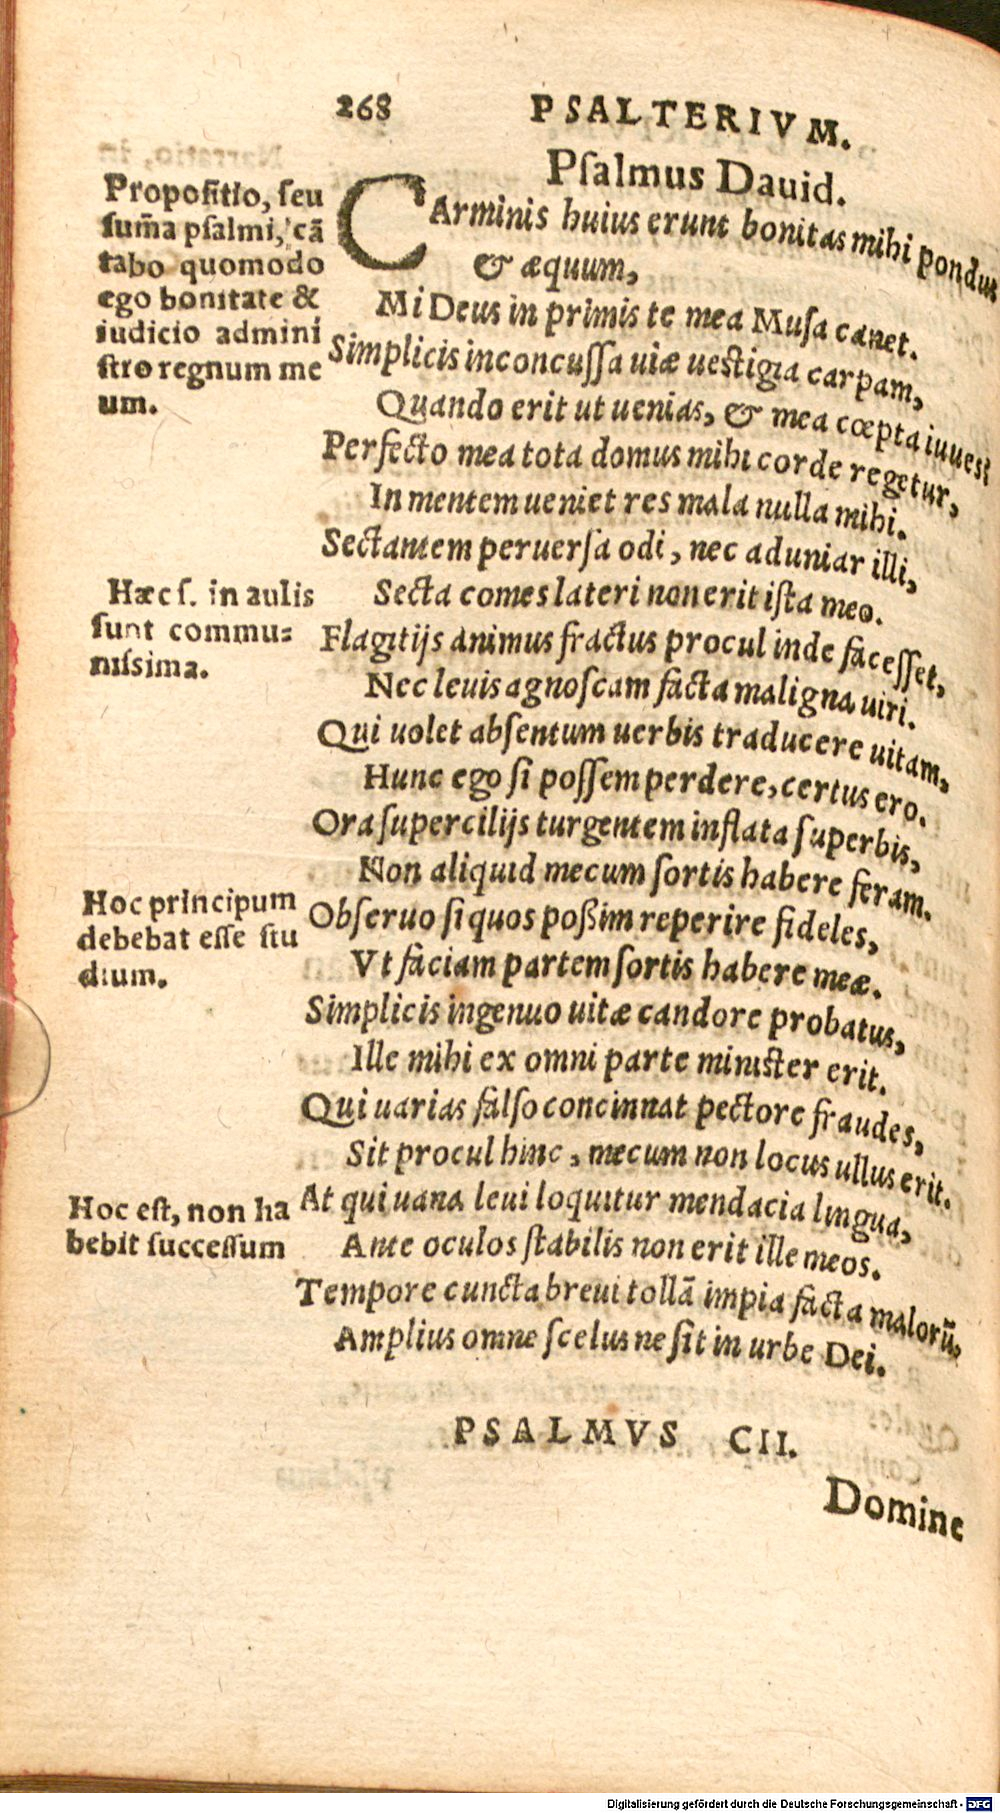 268 PSALTERIVM.
Pſalmus Dauid.
Propoſitio, ſeu
ſum̃a pſalmi, cã
tabo quomodo
ego bonitate &
iudicio admini
ſtro regnum me
um.
CArminis huius erunt bonitas mihi pondus
& æquum,
Mi Deus in primis te mea Muſa canet.
Simplicis inconcuſſa uiæ ueſtigia carpam,
Quando erit ut uenias, & mea cœpta iuues?
Perfecto mea tota domus mihi corde regetur,
In mentem ueniet res mala nulla mihi.
Sectantem peruerſa odi, nec aduniar illi,
Secta comes lateri non erit iſta meo.
Hæc ſ. in aulis
ſunt commu⸗
niſsima.
Flagitijs animus fractus procul inde faceſſet,
Nec leuis agnoſcam facta maligna uiri.
Qui uolet abſentum uerbis traducere uitam,
Hunc ego ſi poſſem perdere, certus ero.
Ora ſupercilijs turgentem inflata ſuperbis,
Non aliquid mecum ſortis habere feram.
Hoc principum
debebat eſſe ſtu
dium.
Obſeruo ſi quos poßim reperire fideles,
Vt faciam partem ſortis habere meæ.
Simplicis ingenuo uitæ candore probatus,
Ille mihi ex omni parte miniſter erit.
Qui uarias falſo concinnat pectore fraudes,
Sit procul hinc, mecum non locus ullus erit.
Hoc eſt, non ha
bebit ſucceſſum
At qui uana leui loquitur mendacia lingua,
Ante oculos ſtabilis non erit ille meos.
Tempore cuncta breui tollã impia facta malorũ,
Amplius omne ſcelus ne ſit in urbe Dei.
PSALMVS CII.
Domine
Digitalisierung gefördert durch die Deutsche Forschungsgemeinschaft - DFG